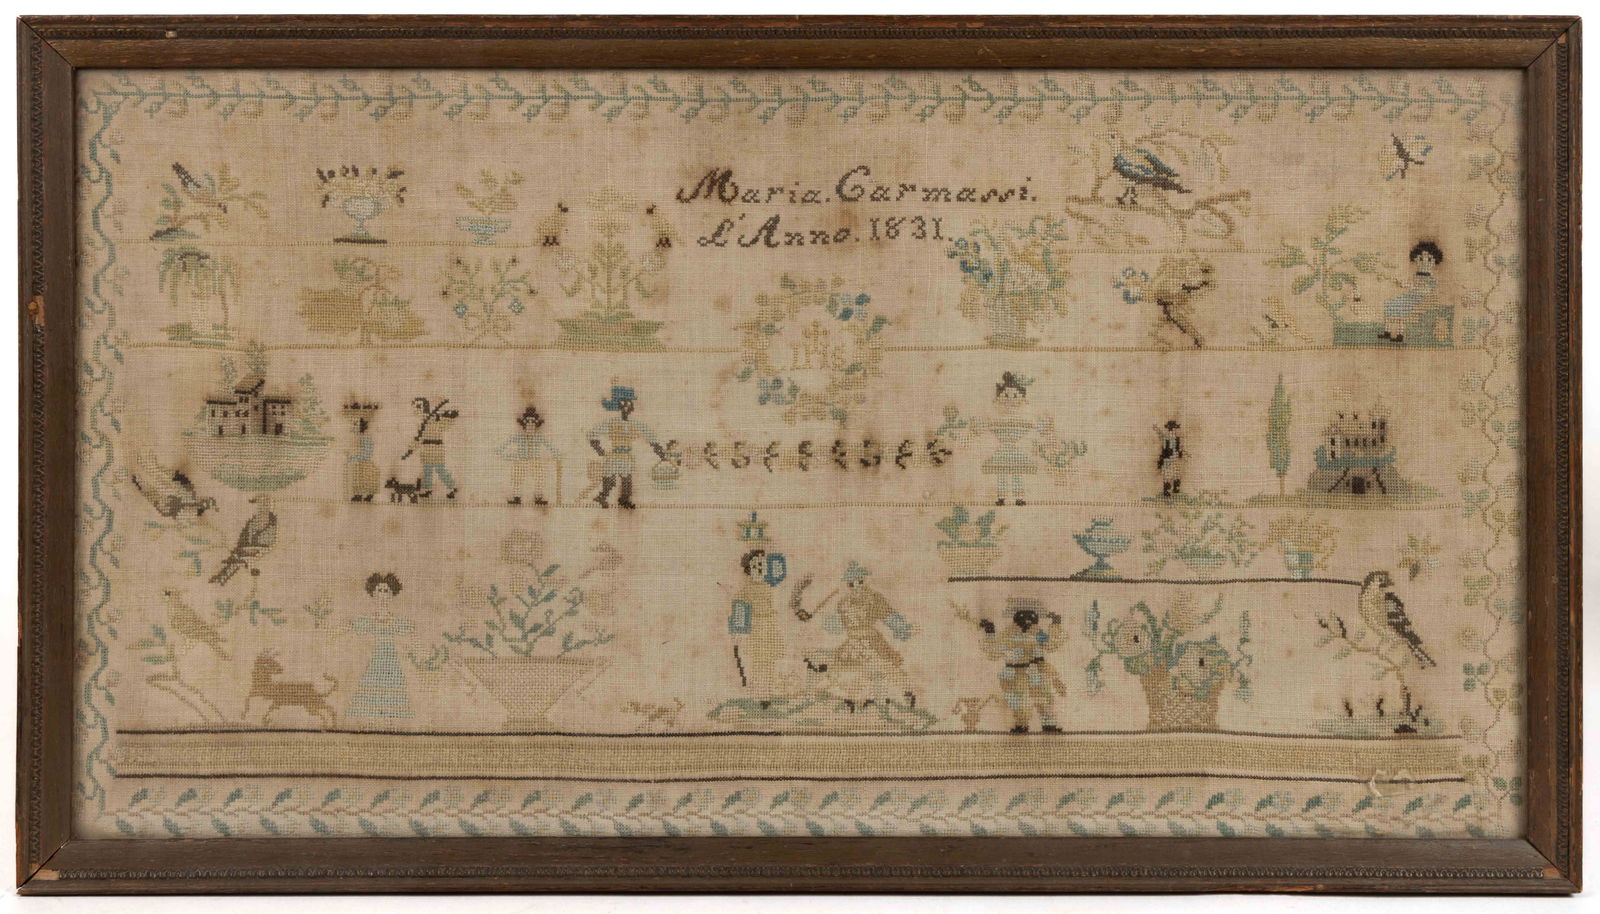 Maria. Carmassi.
L'Anno. 1831.
IHS